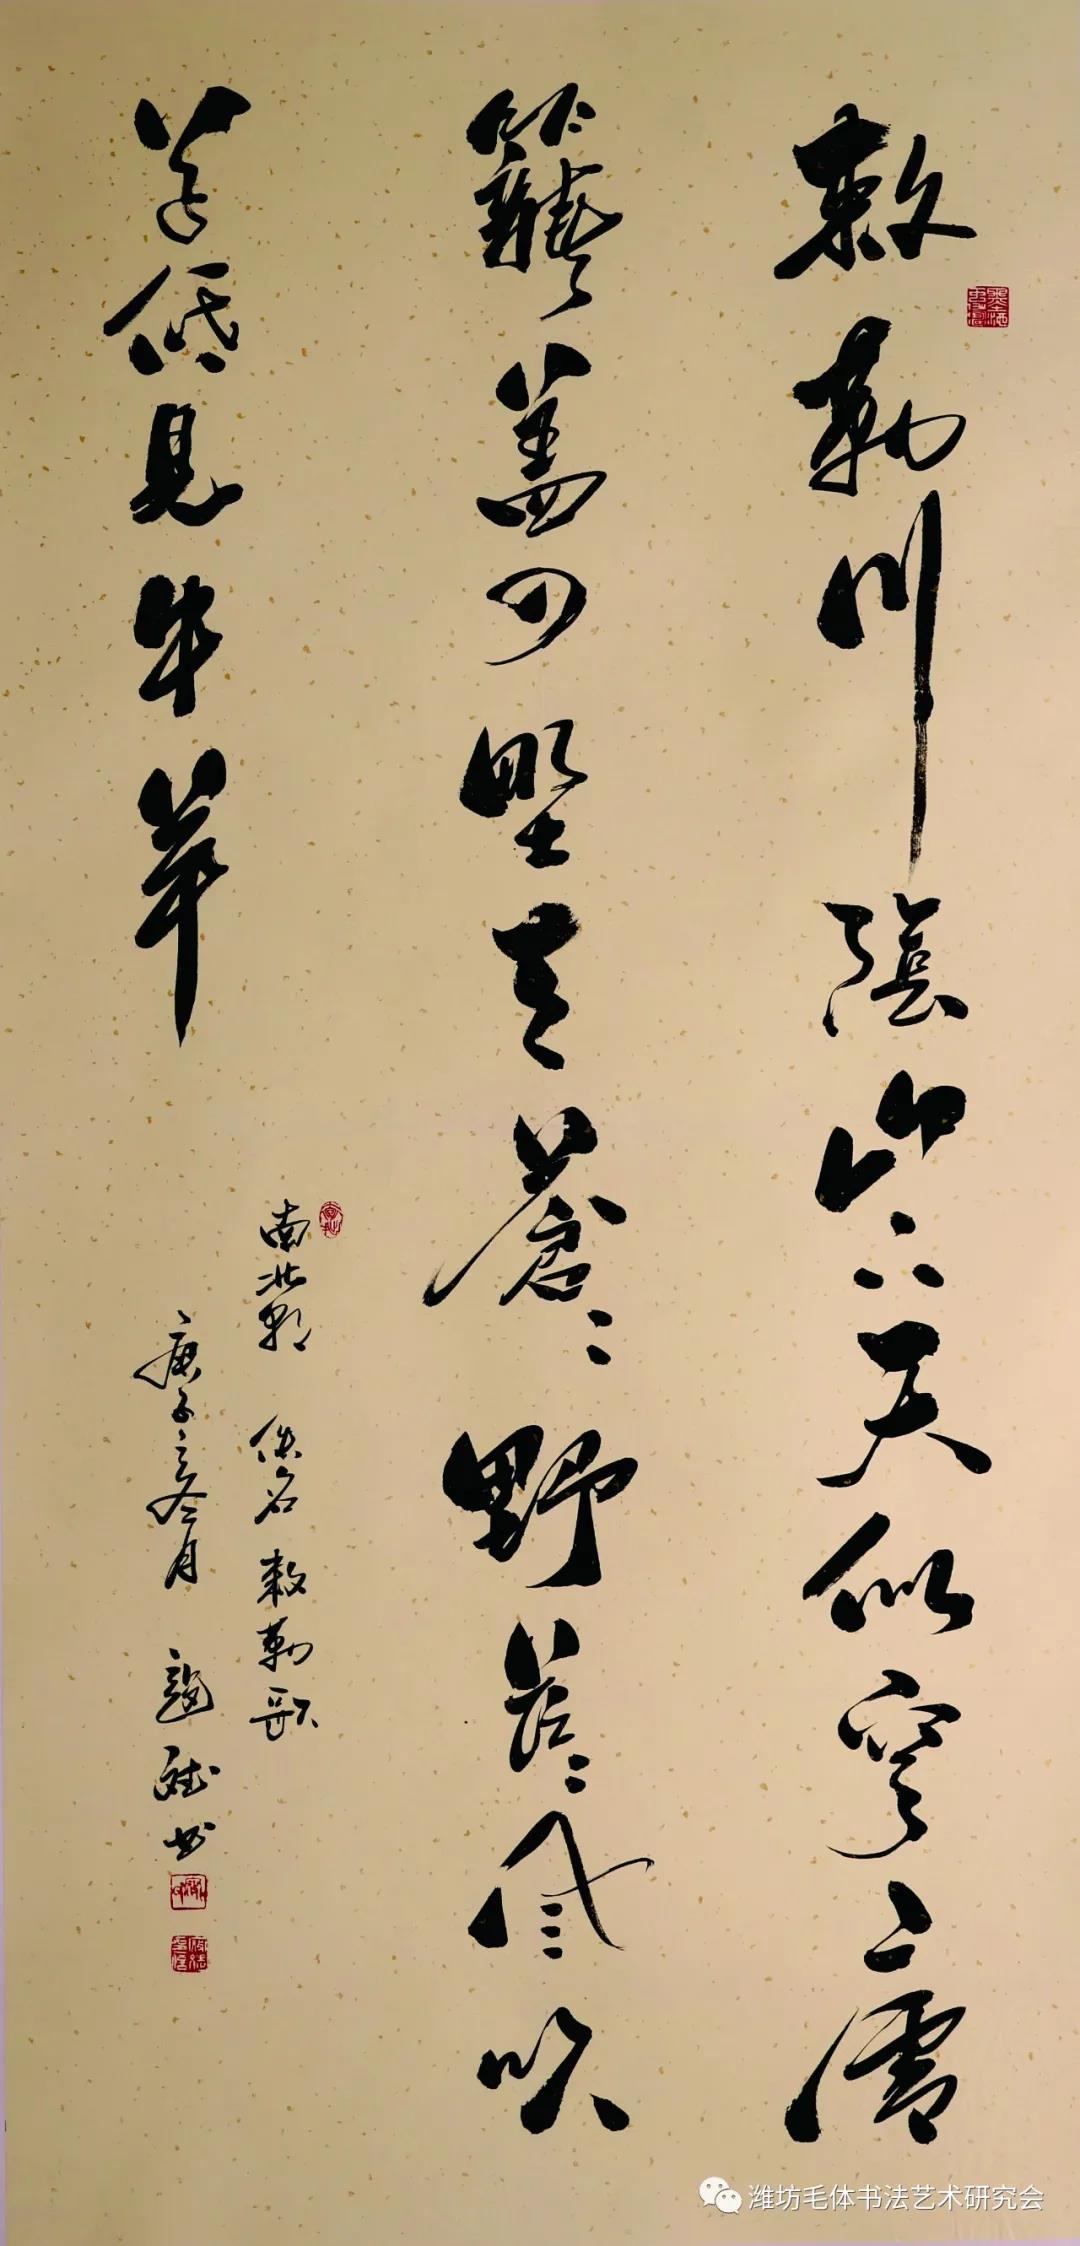 敕勒川陰山下天似穹廬
籠蓋四野天蒼蒼野茫茫風吹
草低見牛羊
南北朝 佚名 敕勒歌
庚子之冬月
書
潍坊毛体书法艺术研究会